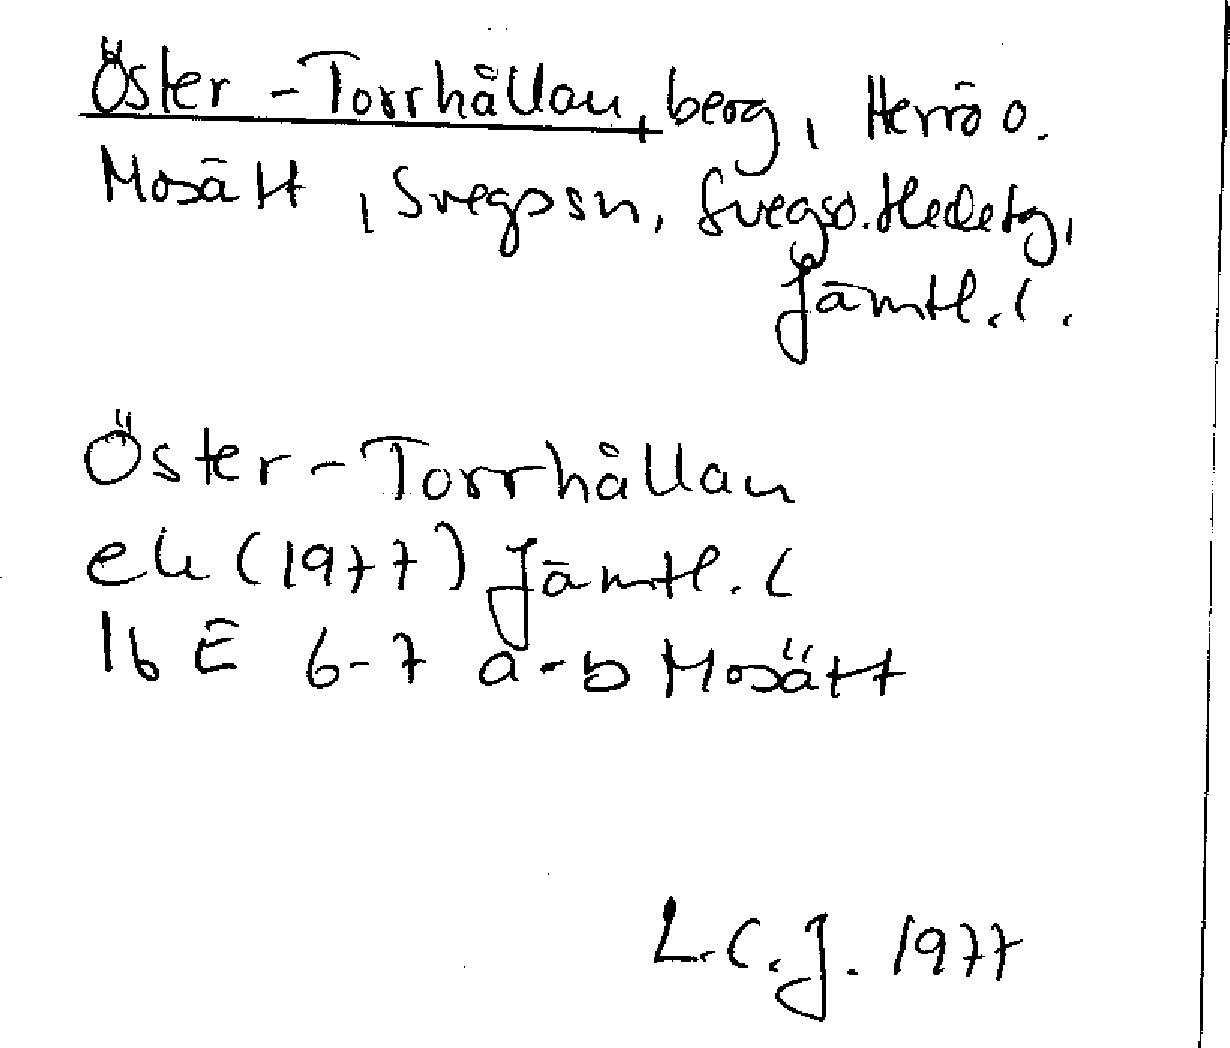 Öster-Torrhållan, berg, Herrö o.
Mosätt, Svegs sn, Svegs o. Hede tg,
Jämtl. l.
Öster-Torrhållan
ek (1977) Jämtl. l
16 E 6-7 a-b Mosätt
L.C.J. 1977